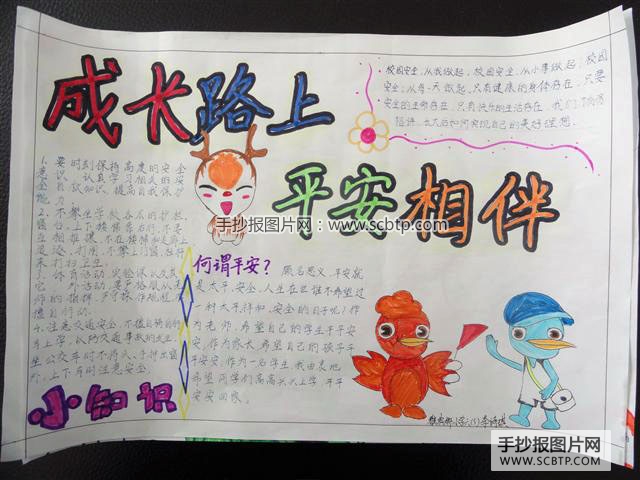 成长路上
平安相伴
校园安全,从我做起,校园安全,从小事做起,校园
安全,从每一天做起,只有健康的身体存在,只要
安全的生命存在,只有快乐的生活存在,我们
长大后如何实现自己的美好理想.
1、要时刻保持高度的安全
意识,认真学习相关的安
全自救知识,提高自我保护
能力
2、不攀坐学校各处的护栏,
窗台,上下楼梯靠右行,不要
互相推搡,不在楼梯和走廊上
追逐,打闹,不攀上门窗
体育活动、实验课以及其它
外活动,要严格服从老
师的指挥,严守操作规程,不
擅自行动.
4、注意交通安全,不擅自骑自行
车上学,
坐公交车时不将头、手伸出窗
外,上下车时注意安全.
小知识
何谓平安?
顾名思义,平安就
是太平,安全,人生在世谁不希望过
一种太平祥和,安全的日子呢?作
为老师,希望自己的学生平平安
安,作为家长希望自己的孩子平
平安安,作为一名学生,我由衷地
希望同学们高高兴兴上学,平平
安安回家.
手抄报图片网
www.scbtp.com
手抄报图片网
WWW.SCBTP.COM